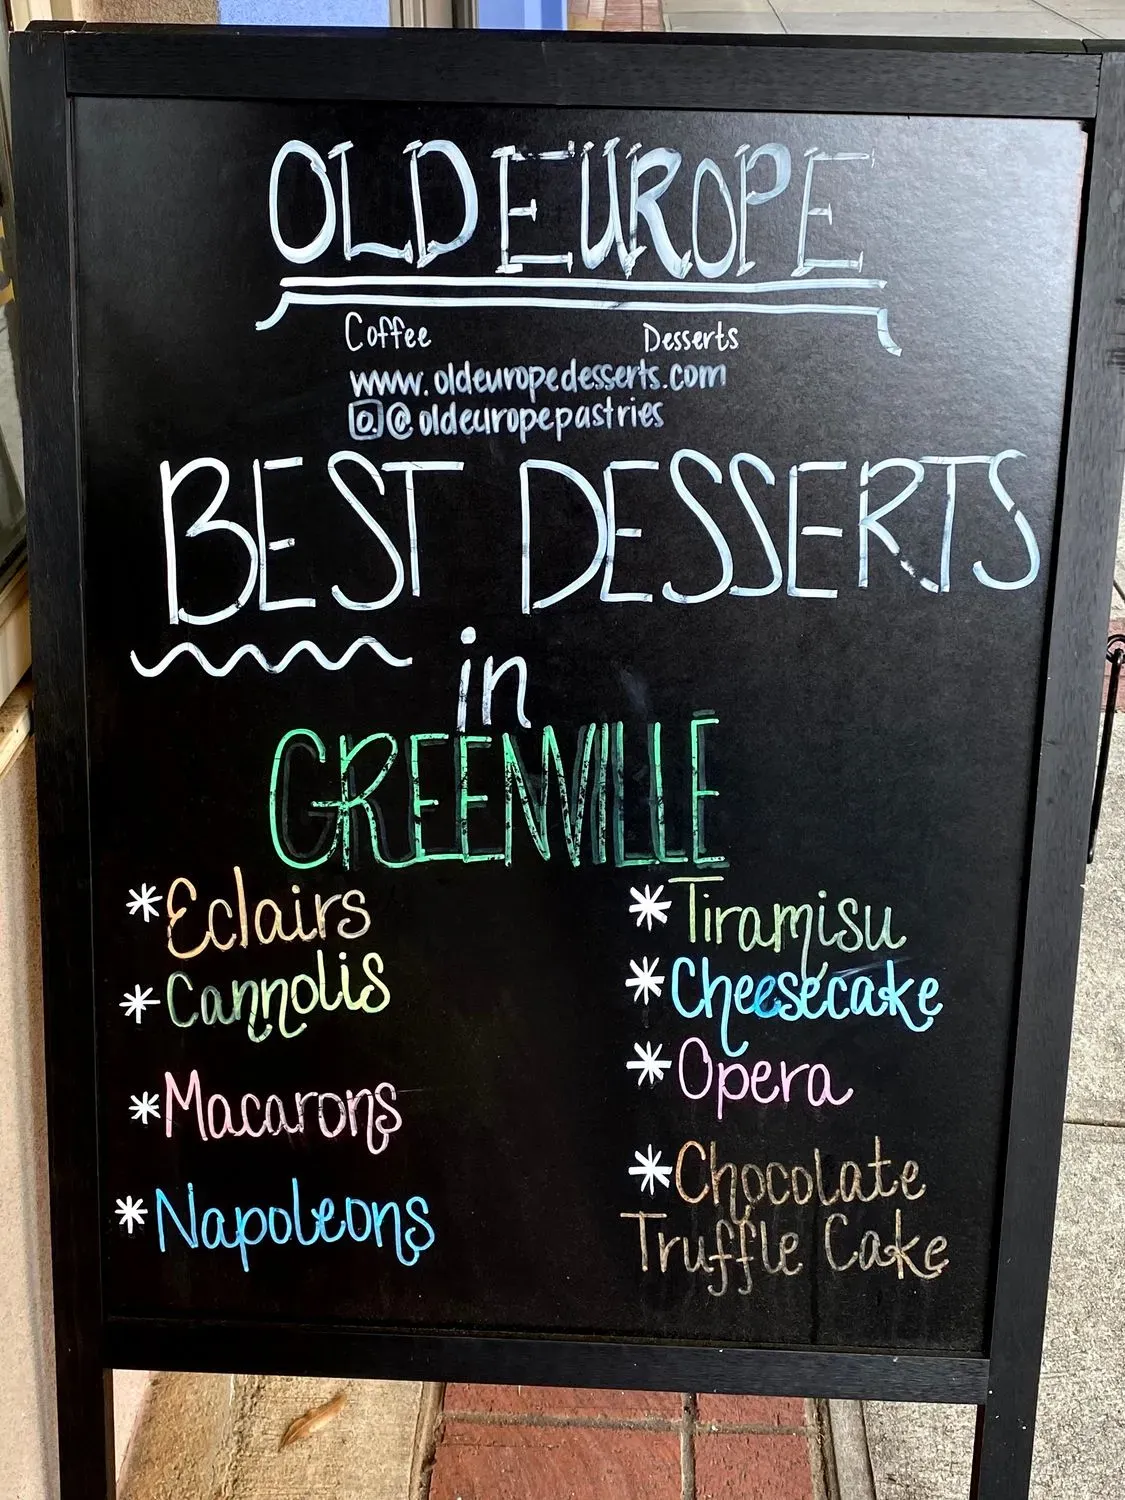 OLD EUROPE
Coffee Desserts
www.oldeuropedesserts.com
@oldeuropepastries
BEST DESSERTS
in
GREENVILLE
*Eclairs
*Cannolis
*Macarons
*Napoleons
*Tiramisu
*Cheesecake
*Opera
*Chocolate
Truffle Cake